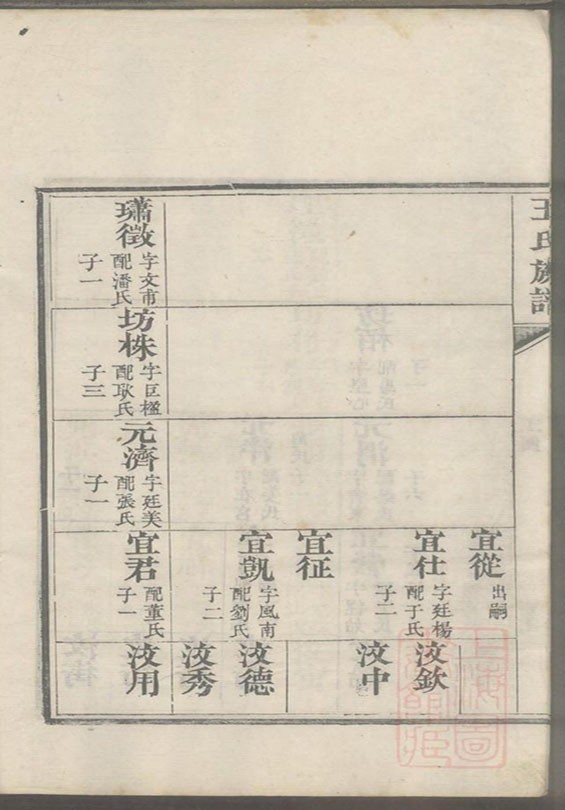 王氏族譜
宜從
出嗣
宜仕
字廷楊
配于氏
子二
汝欽
汝中
宜征
宜凱
字風南
配劉氏
子二
汝德
汝秀
璛徵
字文甫
配潘氏
子一
坊株
字巨楹
配耿氏
子三
元濟
字廷美
配張氏
子一
宜君
配董氏
子一
汝用